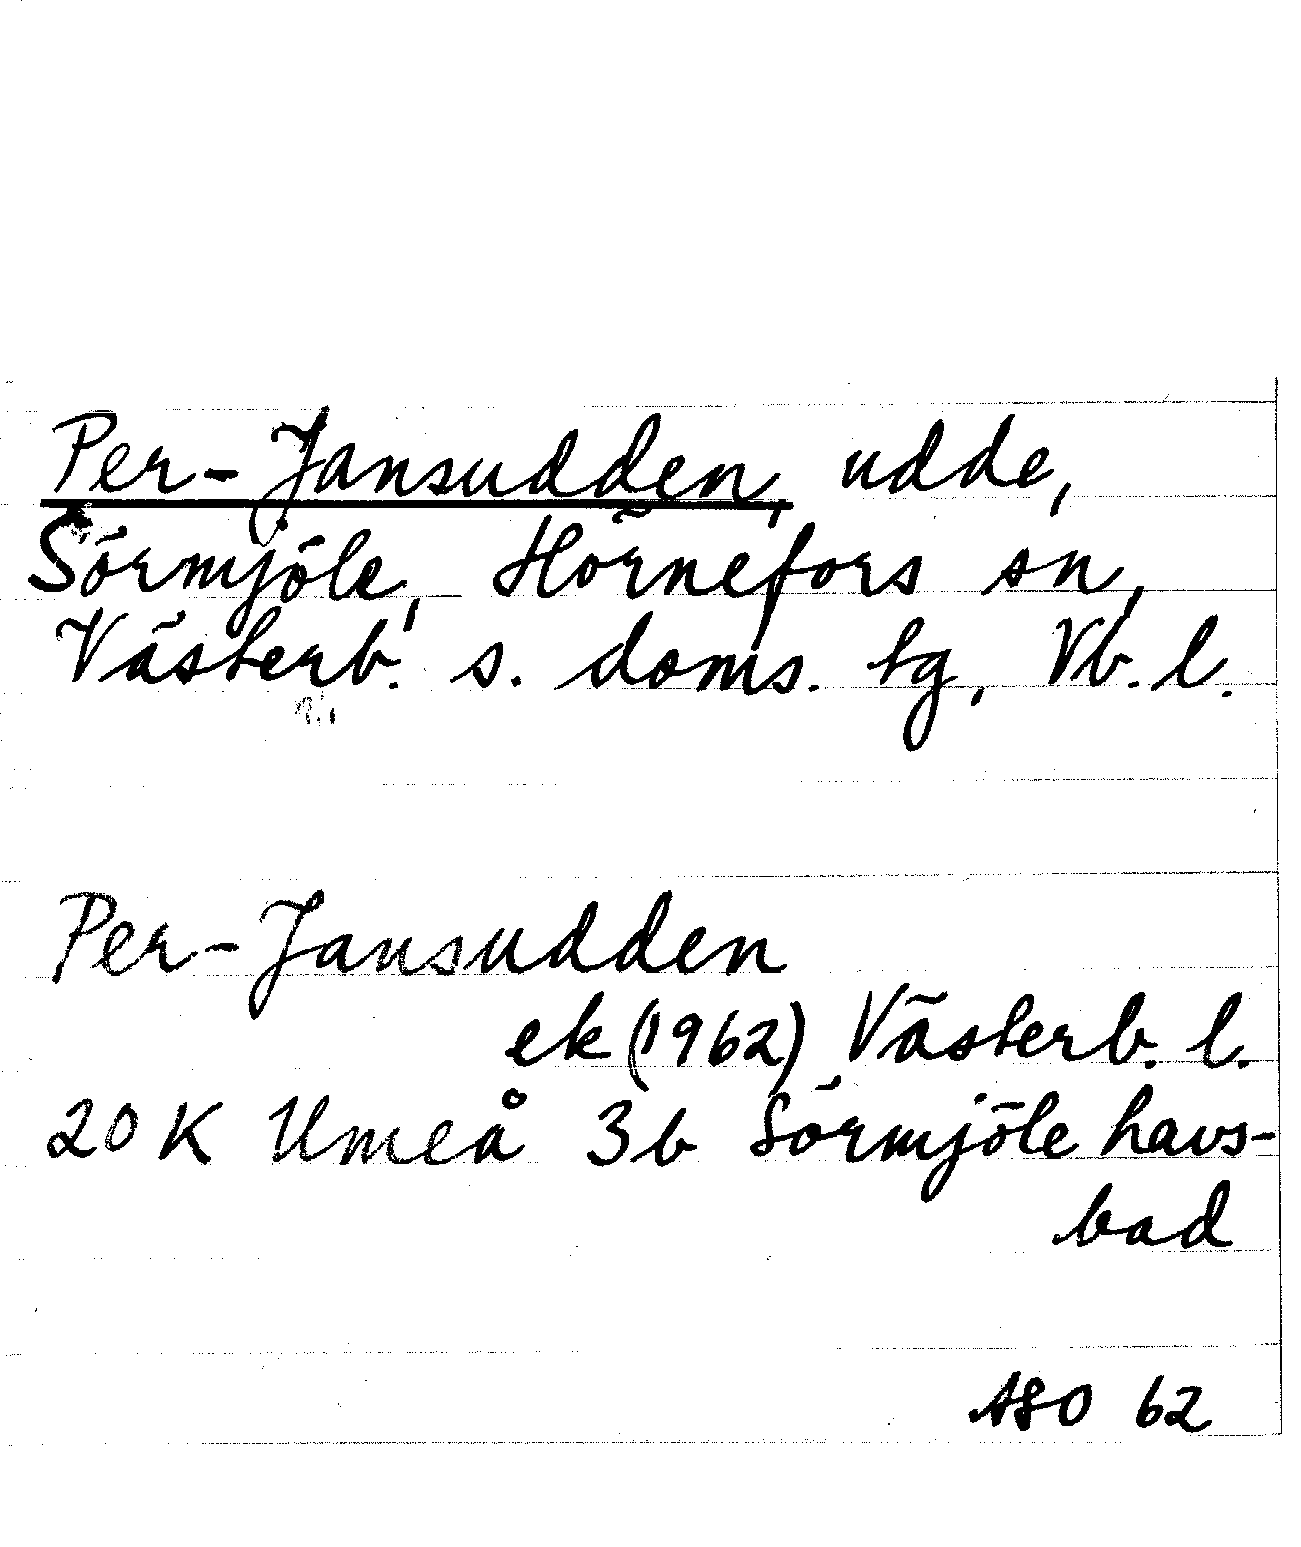 Per-Jansudden, udde,
Sörmjöle, Hörnefors sn,
Västerb. s. doms. tg, Vb. l.
Per-Jansudden
ek (1962) Västerb. l.
20 K Umeå 3b Sörmjöle havs-
bad
ASO 62